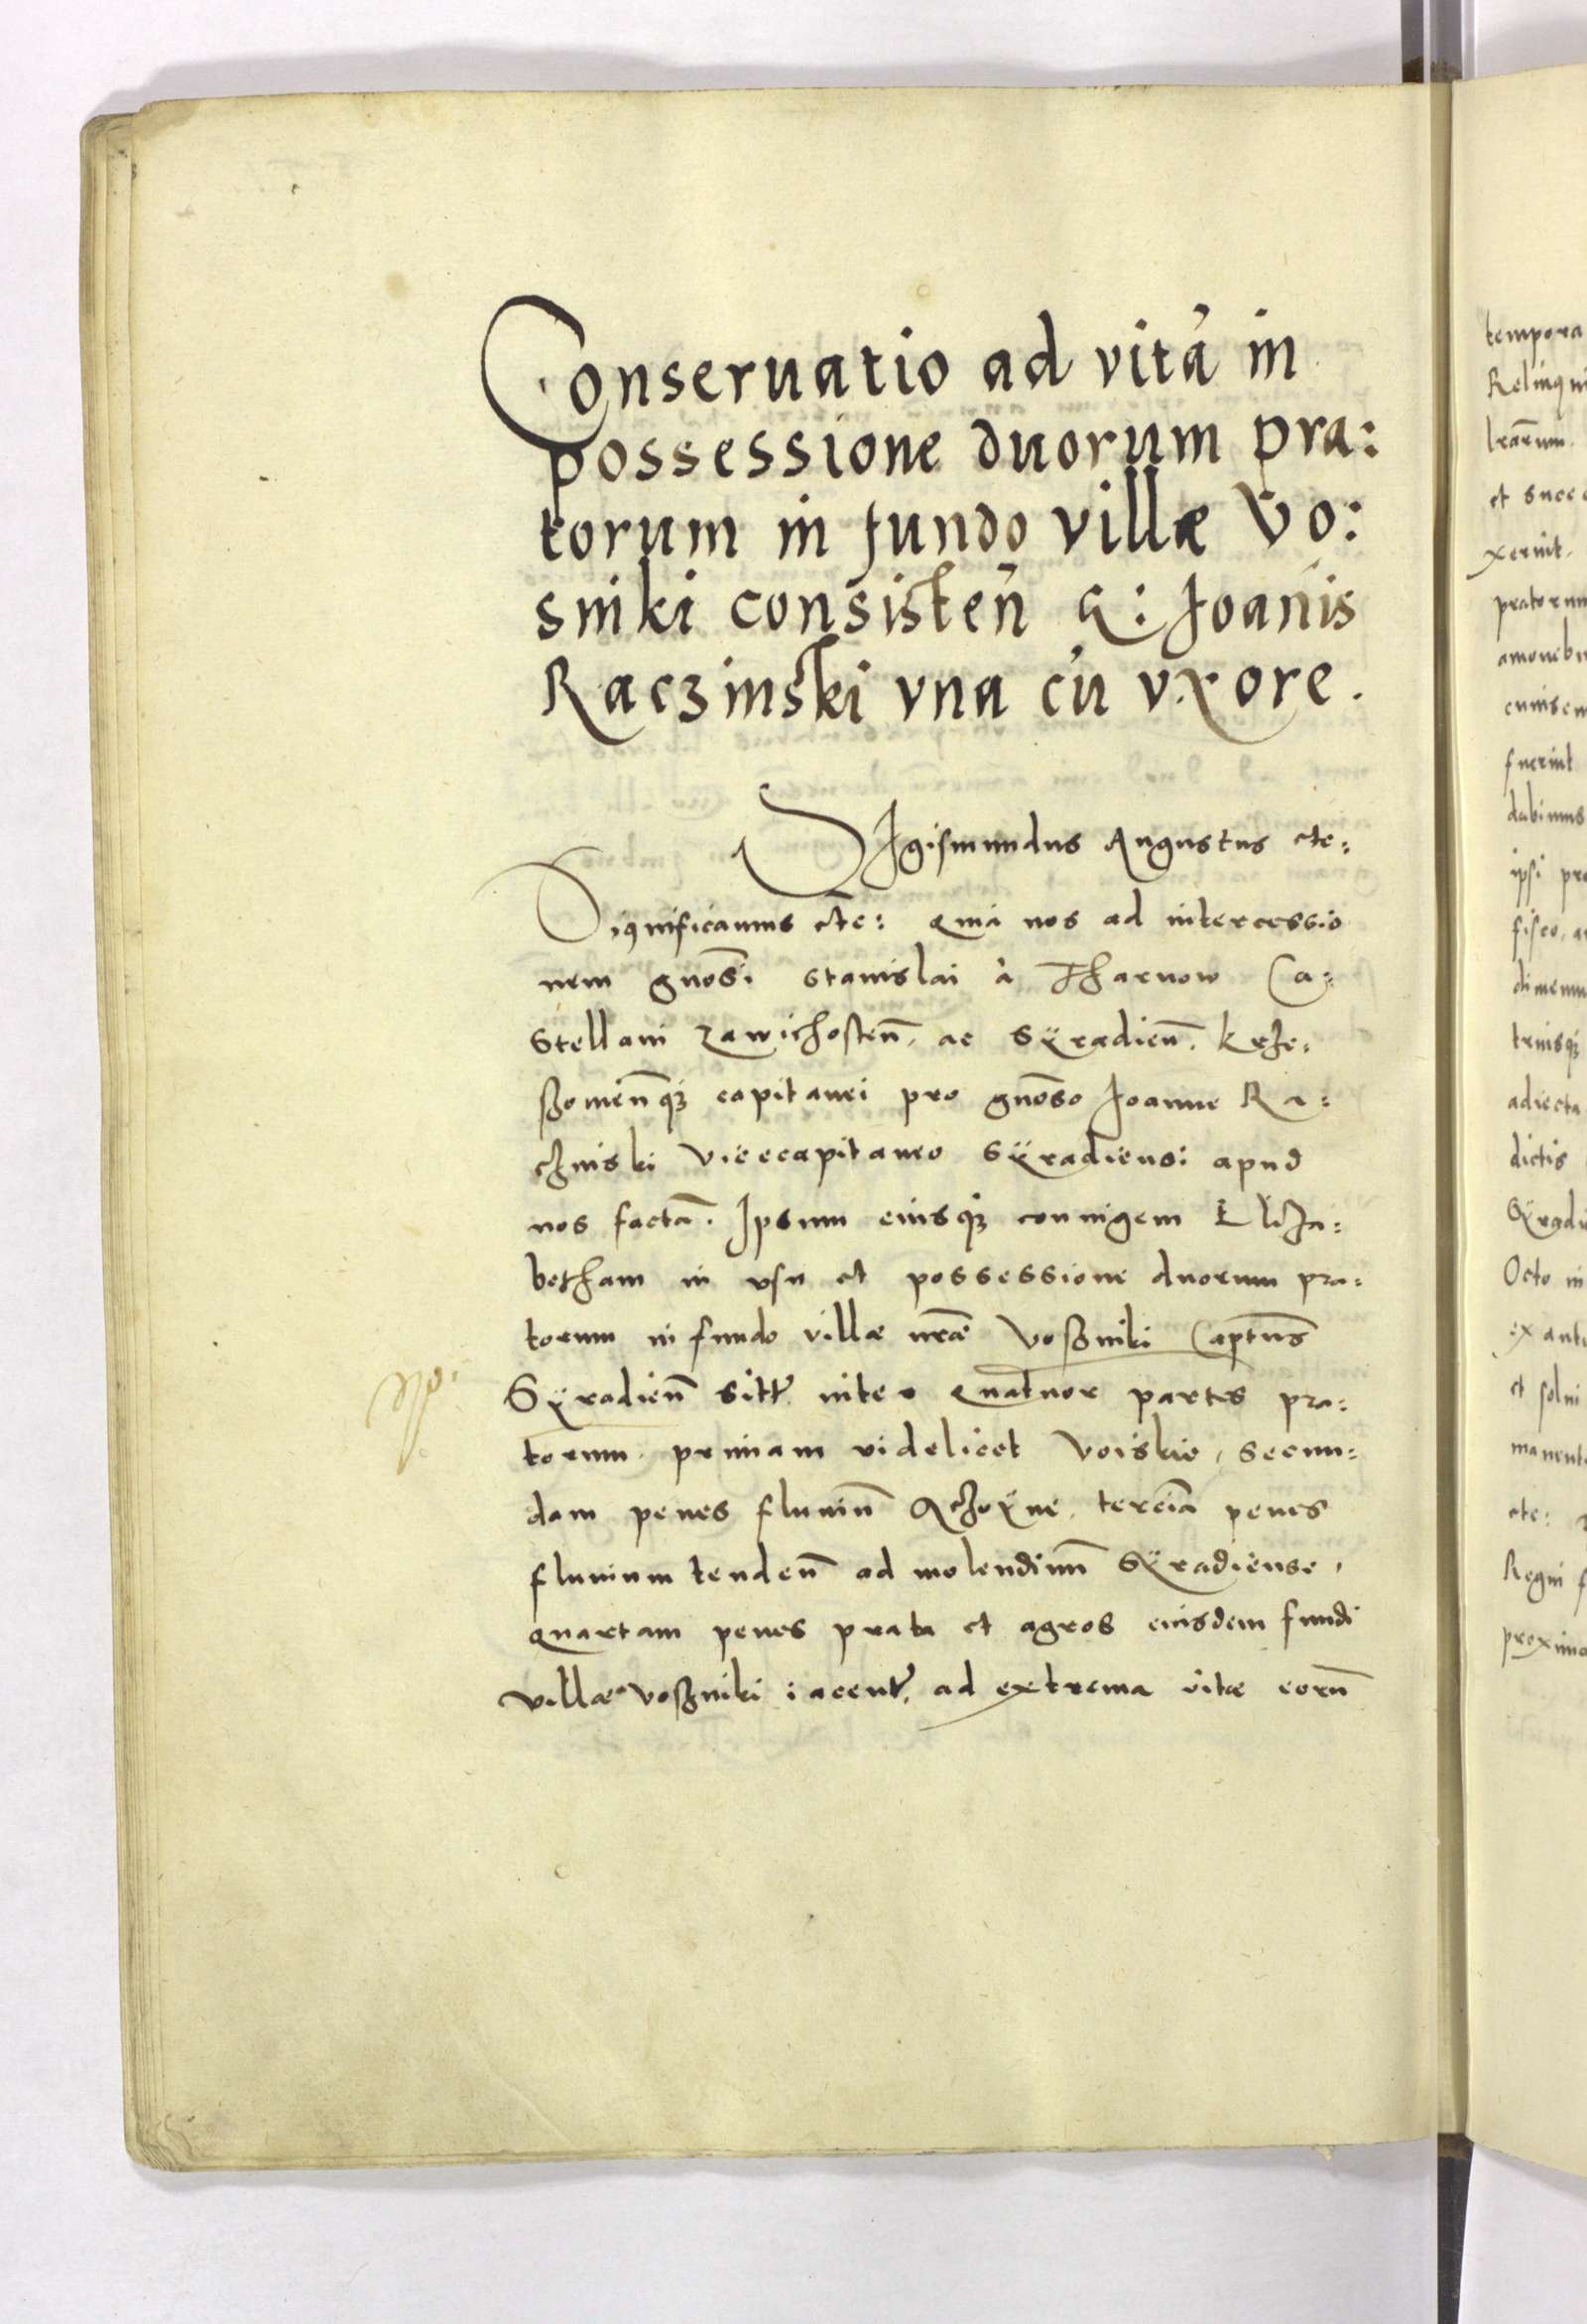 Conseruatio ad vitā in
possessione duorum pra:
torum in fundo villæ Vo:
sniki consisteñ G: Joanis
Raczinski vna cū vxore.
SIgismundus Augustus etc:
Significamus etc: quia nos ad intercessio
nem gnosi Stanislai à Tharnow Ca:
stellani Zawichosteñ. ac Syradieñ. krze:
ssomieñqꝫ capitanei pro gnoso Joanne Ra:
cżinski Vicecapitaneo Syradiensi apud
nos factā. Ipsum eiusqꝫ coniugem Eliza:
betham in vsu et possessione duorum pra:
torum in fundo villæ nræ Voszniki Captus
Syradieñ sitt. inter quatuor partes pra:
torum. primam videlicet Voiskie, secun:
dam penes fluuiū terciā penes
fluuium tendeñ ad molendinū Syradiense,
quartam penes prata et agros eiusdem fundi
villæ Voszniki iacent. ad extrema vitæ eorū
tempora
lrarum.
et succe
xerint.
pratorum
fuerint
dabimus
ipsi pro
fisco, a
adiecta
dictis
Syradi
Octo in
ex ant
et solui
etc:
Regni
proxima